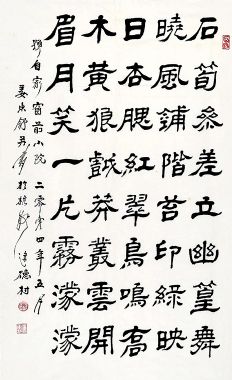 石筍參差立幽篁舞
曉風鋪階苔印綠映
日杏腮紅翠鳥鳴高
木黃狼戲莽叢雲開
眉月笑一片霧濛濛
題自家窗前小院 二零零四年五月
姜東舒并書於杭州德村